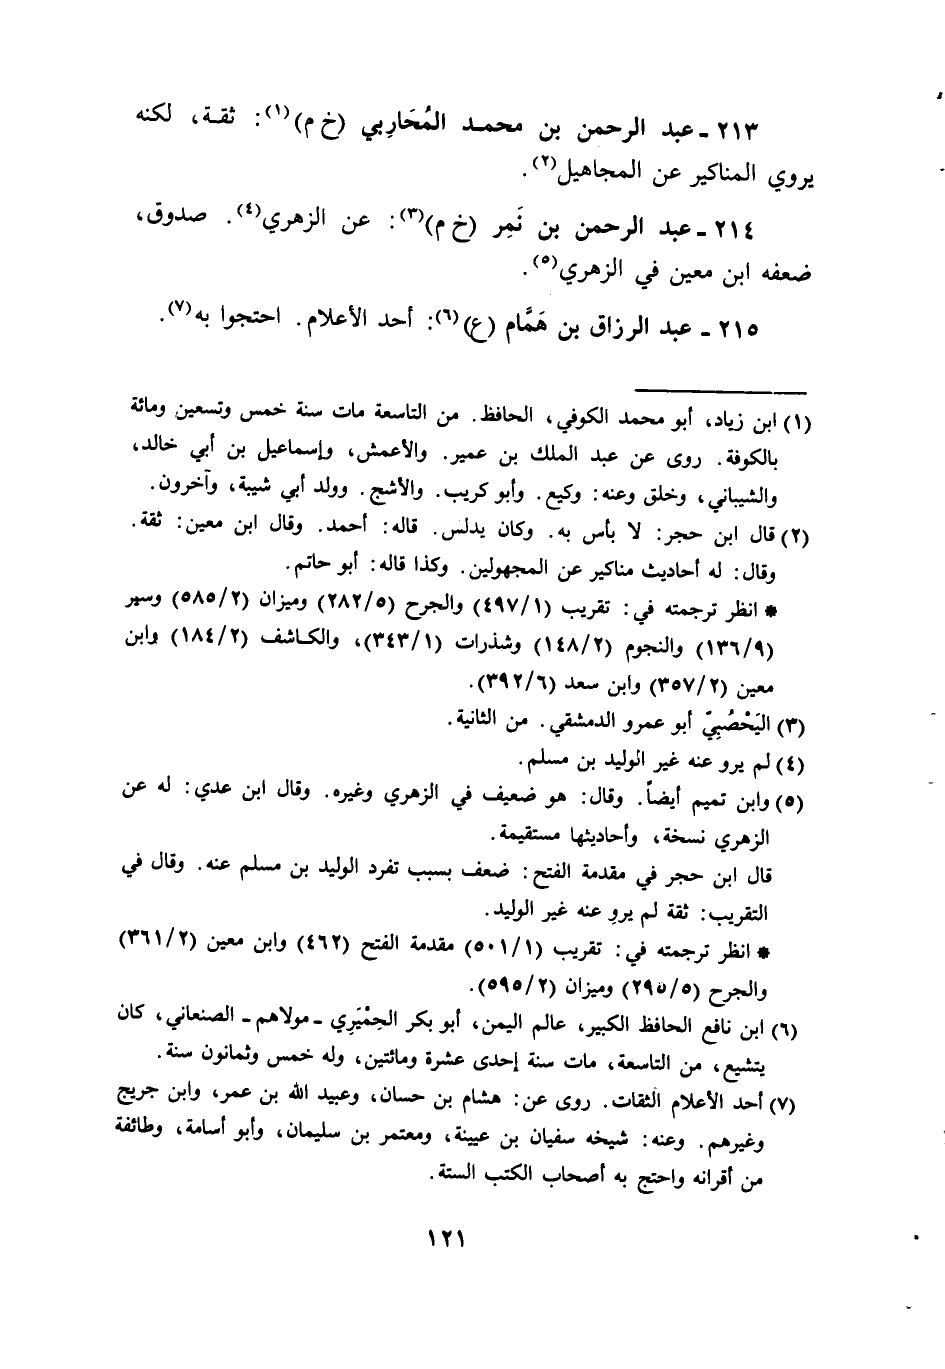 ٢١٣ ـ عبد الرحمن بن محمـد المُحَارِبي (خ م)(١): ثقـة، لكنه
يروي المناكير عن المجاهيل(٢).
٢١٤ ـ عبد الرحمن بن نَمِر (خ م)(٣): عن الزهري(٤). صدوق،
ضعفه ابن معين في الزهري(٥).
٢١٥ ـ عبد الرزاق بن هَمَّام (ع)(٦): أحد الأعلام. احتجوا به(٧).
(١) ابن زياد، أبو محمد الكوفي، الحافظ. من التاسعة مات سنة خمس وتسعين ومائة
بالكوفة. روى عن عبد الملك بن عمير. والأعمش، وإسماعيل بن أبي خالد،
والشيباني، وخلق وعنه: وكيع. وأبو كريب. والأشج. وولد أبي شيبة، وآخرون.
(٢) قال ابن حجر: لا بأس به. وكان يدلس. قاله: أحمد. وقال ابن معين: ثقة.
وقال: له أحاديث مناكير عن المجهولين. وكذا قاله: أبو حاتم.
* انظر ترجمته في: تقريب (٤٩٧/١) والجرح (٢٨٢/٥) وميزان (٥٨٥/٢) وسير
(١٣٦/٩) والنجوم (١٤٨/٢) وشذرات (٣٤٣/١)، والكاشف (١٨٤/٢) وابن
معين (٣٥٧/٢) وابن سعد (٣٩٢/٦).
(٣) اليَحْصُبيّ أبو عمرو الدمشقي. من الثانية.
(٤) لم يرو عنه غير الوليد بن مسلم.
(٥) وابن تميم أيضاً. وقال: هو ضعيف في الزهري وغيره. وقال ابن عدي: له عن
الزهري نسخة، وأحاديثها مستقيمة.
قال ابن حجر في مقدمة الفتح: ضعف بسبب تفرد الوليد بن مسلم عنه. وقال في
التقريب: ثقة لم يروِ عنه غير الوليد.
* انظر ترجمته في: تقريب (٥٠١/١) مقدمة الفتح (٤٦٢) وابن معين (٣٦١/٢)
والجرح (٢٩٥/٥) وميزان (٥٩٥/٢).
(٦) ابن نافع الحافظ الكبير، عالم اليمن، أبو بكر الحِمْيَرِي ـ مولاهم ـ الصنعاني، كان
يتشيع، من التاسعة، مات سنة إحدى عشرة ومائتين، وله خمس وثمانون سنة.
(٧) أحد الأعلام الثقات. روى عن: هشام بن حسان، وعبيد الله بن عمر، وابن جريج
وغيرهم. وعنه: شيخه سفيان بن عيينة، ومعتمر بن سليمان، وأبو أسامة، وطائفة
من أقرانه واحتج به أصحاب الكتب الستة.
١٢١